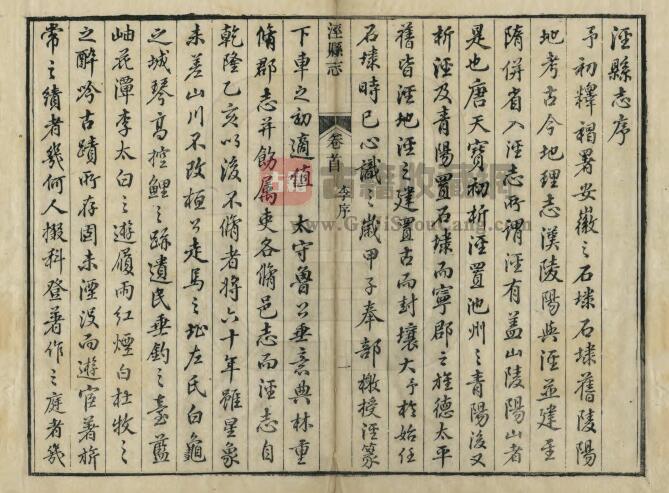 涇縣志序
予初釋褐署安徽之石埭石埭舊陵陽
地考古今地理志漢陵陽與涇並建至
隋併省入涇志所謂涇有蓋山陵陽山者
是也唐天寶初析涇置池州之青陽後又
析涇及青陽置石埭而寧郡之旌德太平
舊皆涇地涇之建置古而封壤大予於始任
石埭時已心識之歲甲子奉部檄授涇篆
涇縣志
卷首
李序
一
下車之初適值 太守魯公垂意典林重
脩郡志并飭属吏各脩邑志而涇志自
乾隆乙亥以後不脩者將六十年雖星象
未差山川不改桓公走馬之址左氏白龜
之城琴高控鯉之跡遺民垂釣之臺藍
岫花潭李太白之遊屐雨紅煙白杜牧之
之醉吟古蹟所存固未湮没而遊宦著旂
常之績者幾何人掇科登著作之庭者幾
古籍收藏网
www.GuJiShouCang.com